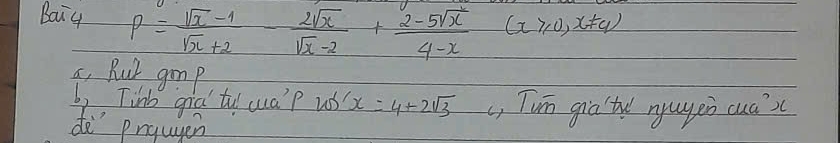 Bài 4 P = \frac{\sqrt{x}-1}{\sqrt{x}+2} - \frac{2\sqrt{x}}{\sqrt{x}-2} + \frac{2-5\sqrt{x}}{4-x} (x ≥ 0, x ≠ 4)
a, Rút gọn P
b, Tính giá trị của P với x = 4 + 2√3 c, Tìm giá trị nguyên của x
để P nguyên